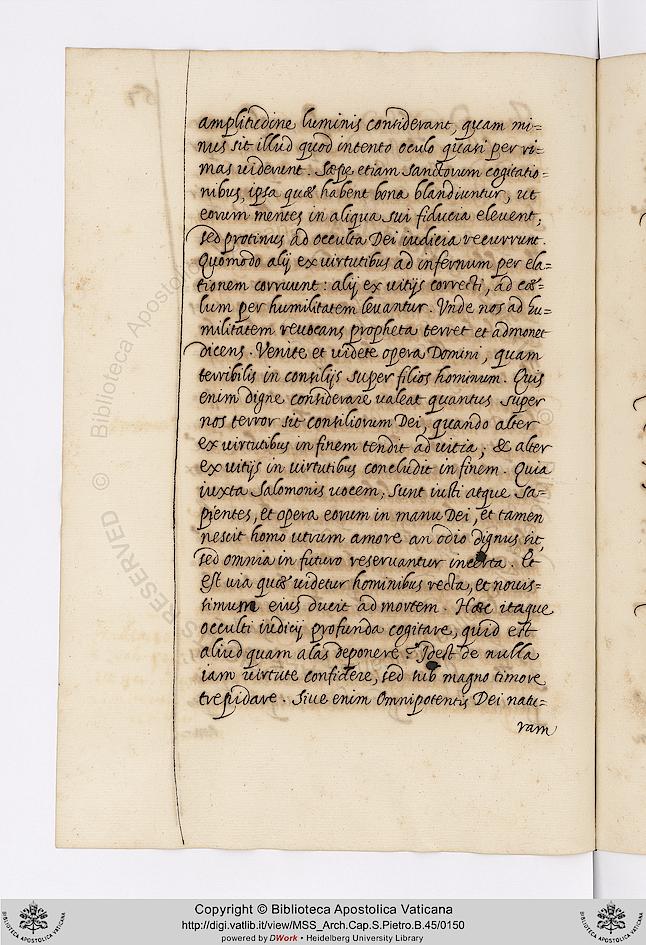 amplitudine luminis considerant, quam mi=
nus sit illud quod intento oculo quasi per ri=
mas viderunt. Sæpe etiam sanctorum cogitatio=
nibus, ipsa quæ habent bona blandiuntur, ut
eorum mentes in aliqua sui fiducia elevent;
sed protinus ad occulta Dei iudicia recurrunt.
Quomodo alij ex virtutibus ad infernum per ela=
tionem corruunt: alij ex vitijs correcti, ad cæ=
lum per humilitatem levantur. Unde nos ad hu=
militatem revocans propheta terret et admonet
dicens. Venite et videte opera Domini, quam
terribilis in consilijs super filios hominum. Quis
enim digne considerare valeat quantus super
nos terror sit consiliorum Dei, quando alter
ex virtutibus in finem tendit ad vitia; & alter
ex vitijs in virtutibus concludit in finem. Quia
iuxta Salomonis vocem, sunt iusti atque sa=
pientes, et opera eorum in manu Dei, et tamen
nescit homo utrum amore an odio dignus sit,
sed omnia in futuro reservantur incerta. Et
est via quæ videtur hominibus recta, et novis=
simum eius ducit ad mortem. Hæc itaque
occulti iudicij profunda cogitare, quid est
aliud quam alas deponere? Idest de nulla
iam virtute confidere, sed sub magno timore
trepidare. Sive enim Omnipotentis Dei natu=
ram
© Biblioteca Apostolica
RESERVED ©
Copyright © Biblioteca Apostolica Vaticana
http://digi.vatlib.it/view/MSS_Arch.Cap.S.Pietro.B.45/0150
powered by DWork • Heidelberg University Library
BIBLIOTECA APOSTOLICA VATICANA
BIBLIOTECA APOSTOLICA VATICANA